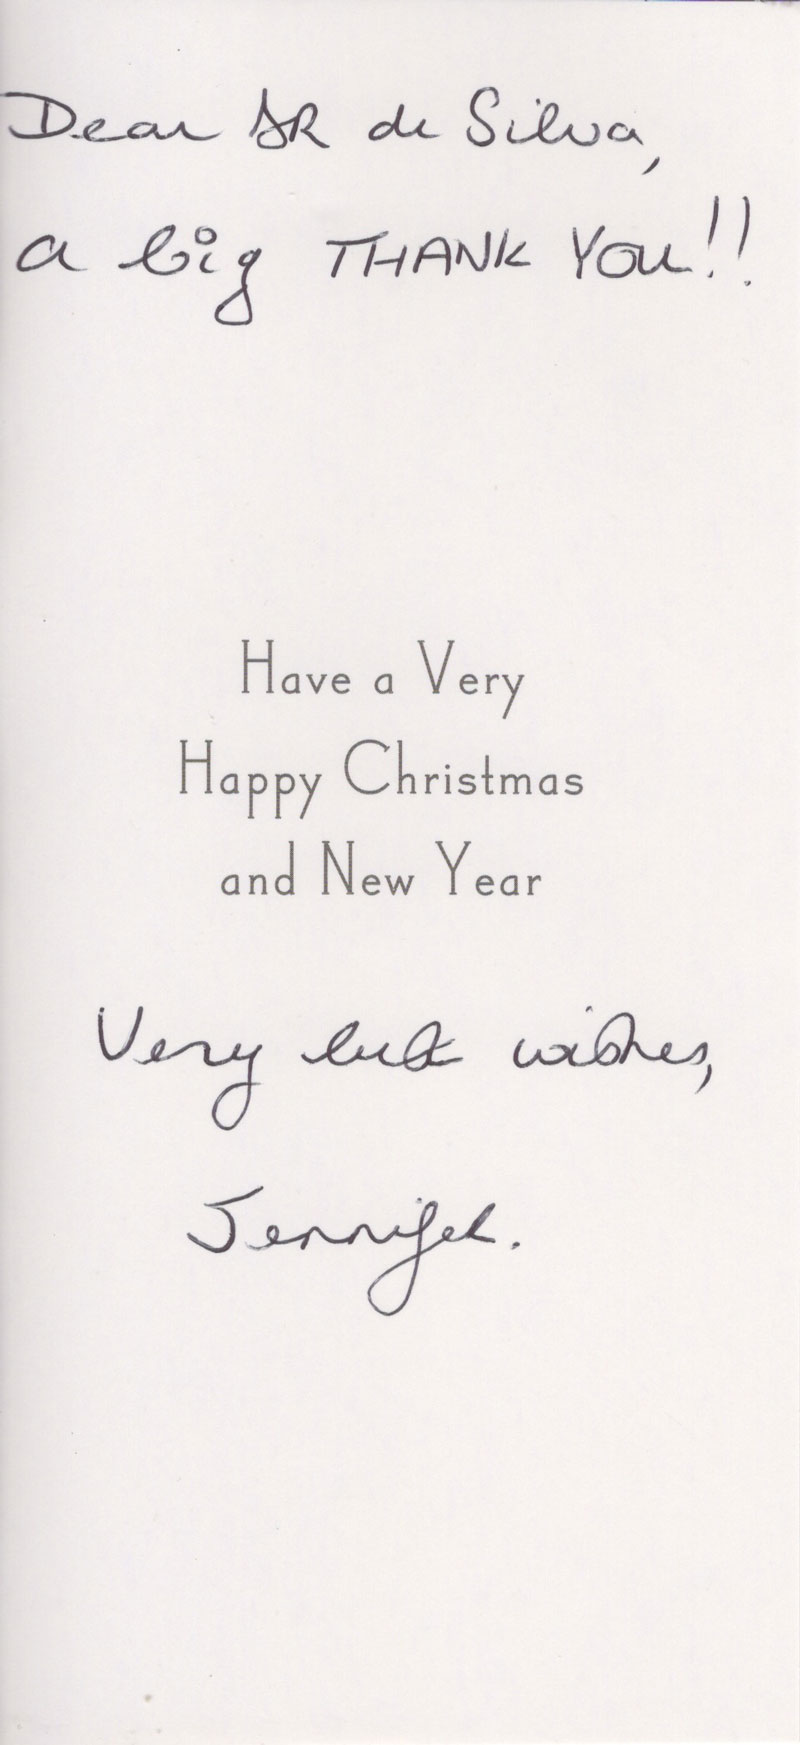 Dear DR de Silva,
a big THANK YOU!!
Have a Very
Happy Christmas
and New Year
Very best wishes,
Jennifer.